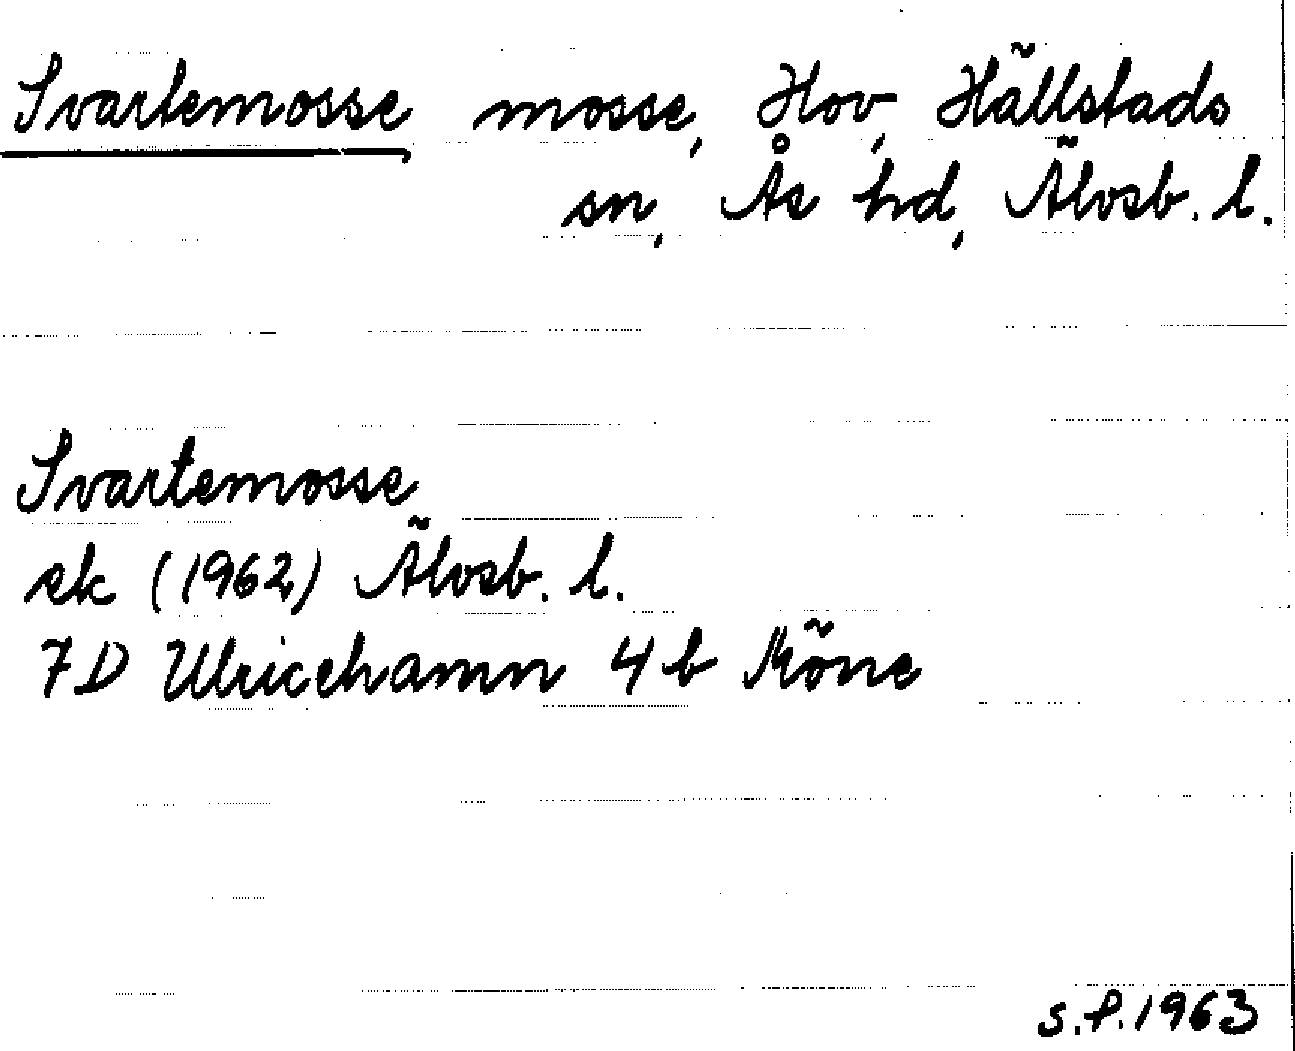 Svartemosse mosse, Hov, Hällstads
sn, Ås hd, Älvsb. l.
Svartemosse
ek (1962) Älvsb. l.
7D Ulricehamn 4b Köne
S.P.1963